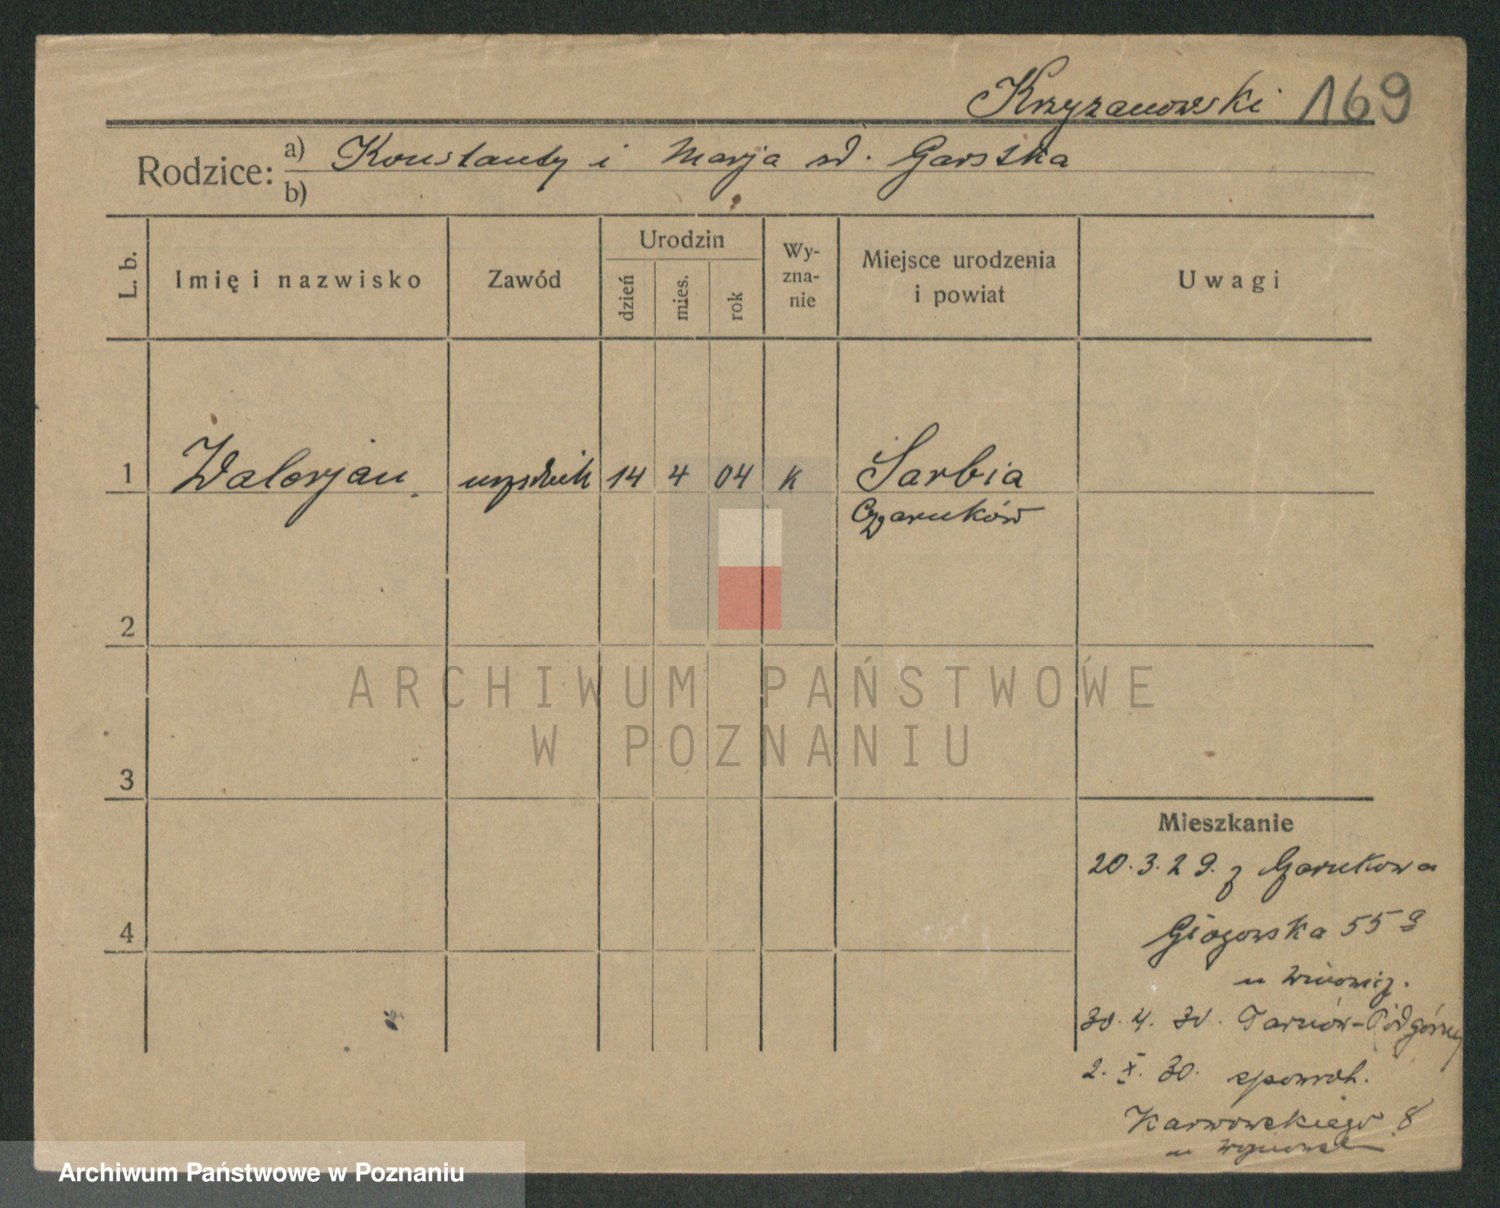 Krzyżanowski 169
Rodzice: a) Konstanty i Marja zd. Garstka
b)
L. b.
Imię i nazwisko
Zawód
Urodzin
dzień
mies.
rok
Wy-
zna-
nie
Miejsce urodzenia
i powiat
Uwagi
1 Walerjan urzędnik 14 4 04 k Sarbia
Czarnków
2
ARCHIWUM PAŃSTWOWE
W POZNANIU
3
4
Mieszkanie
20.3.29. z Czarnkowa
Głogowska 55
u
30.4.30. Tarnów-Podgórny
2. X. 30. spowrot.
Karwowskiego 8
u
Archiwum Państwowe w Poznaniu